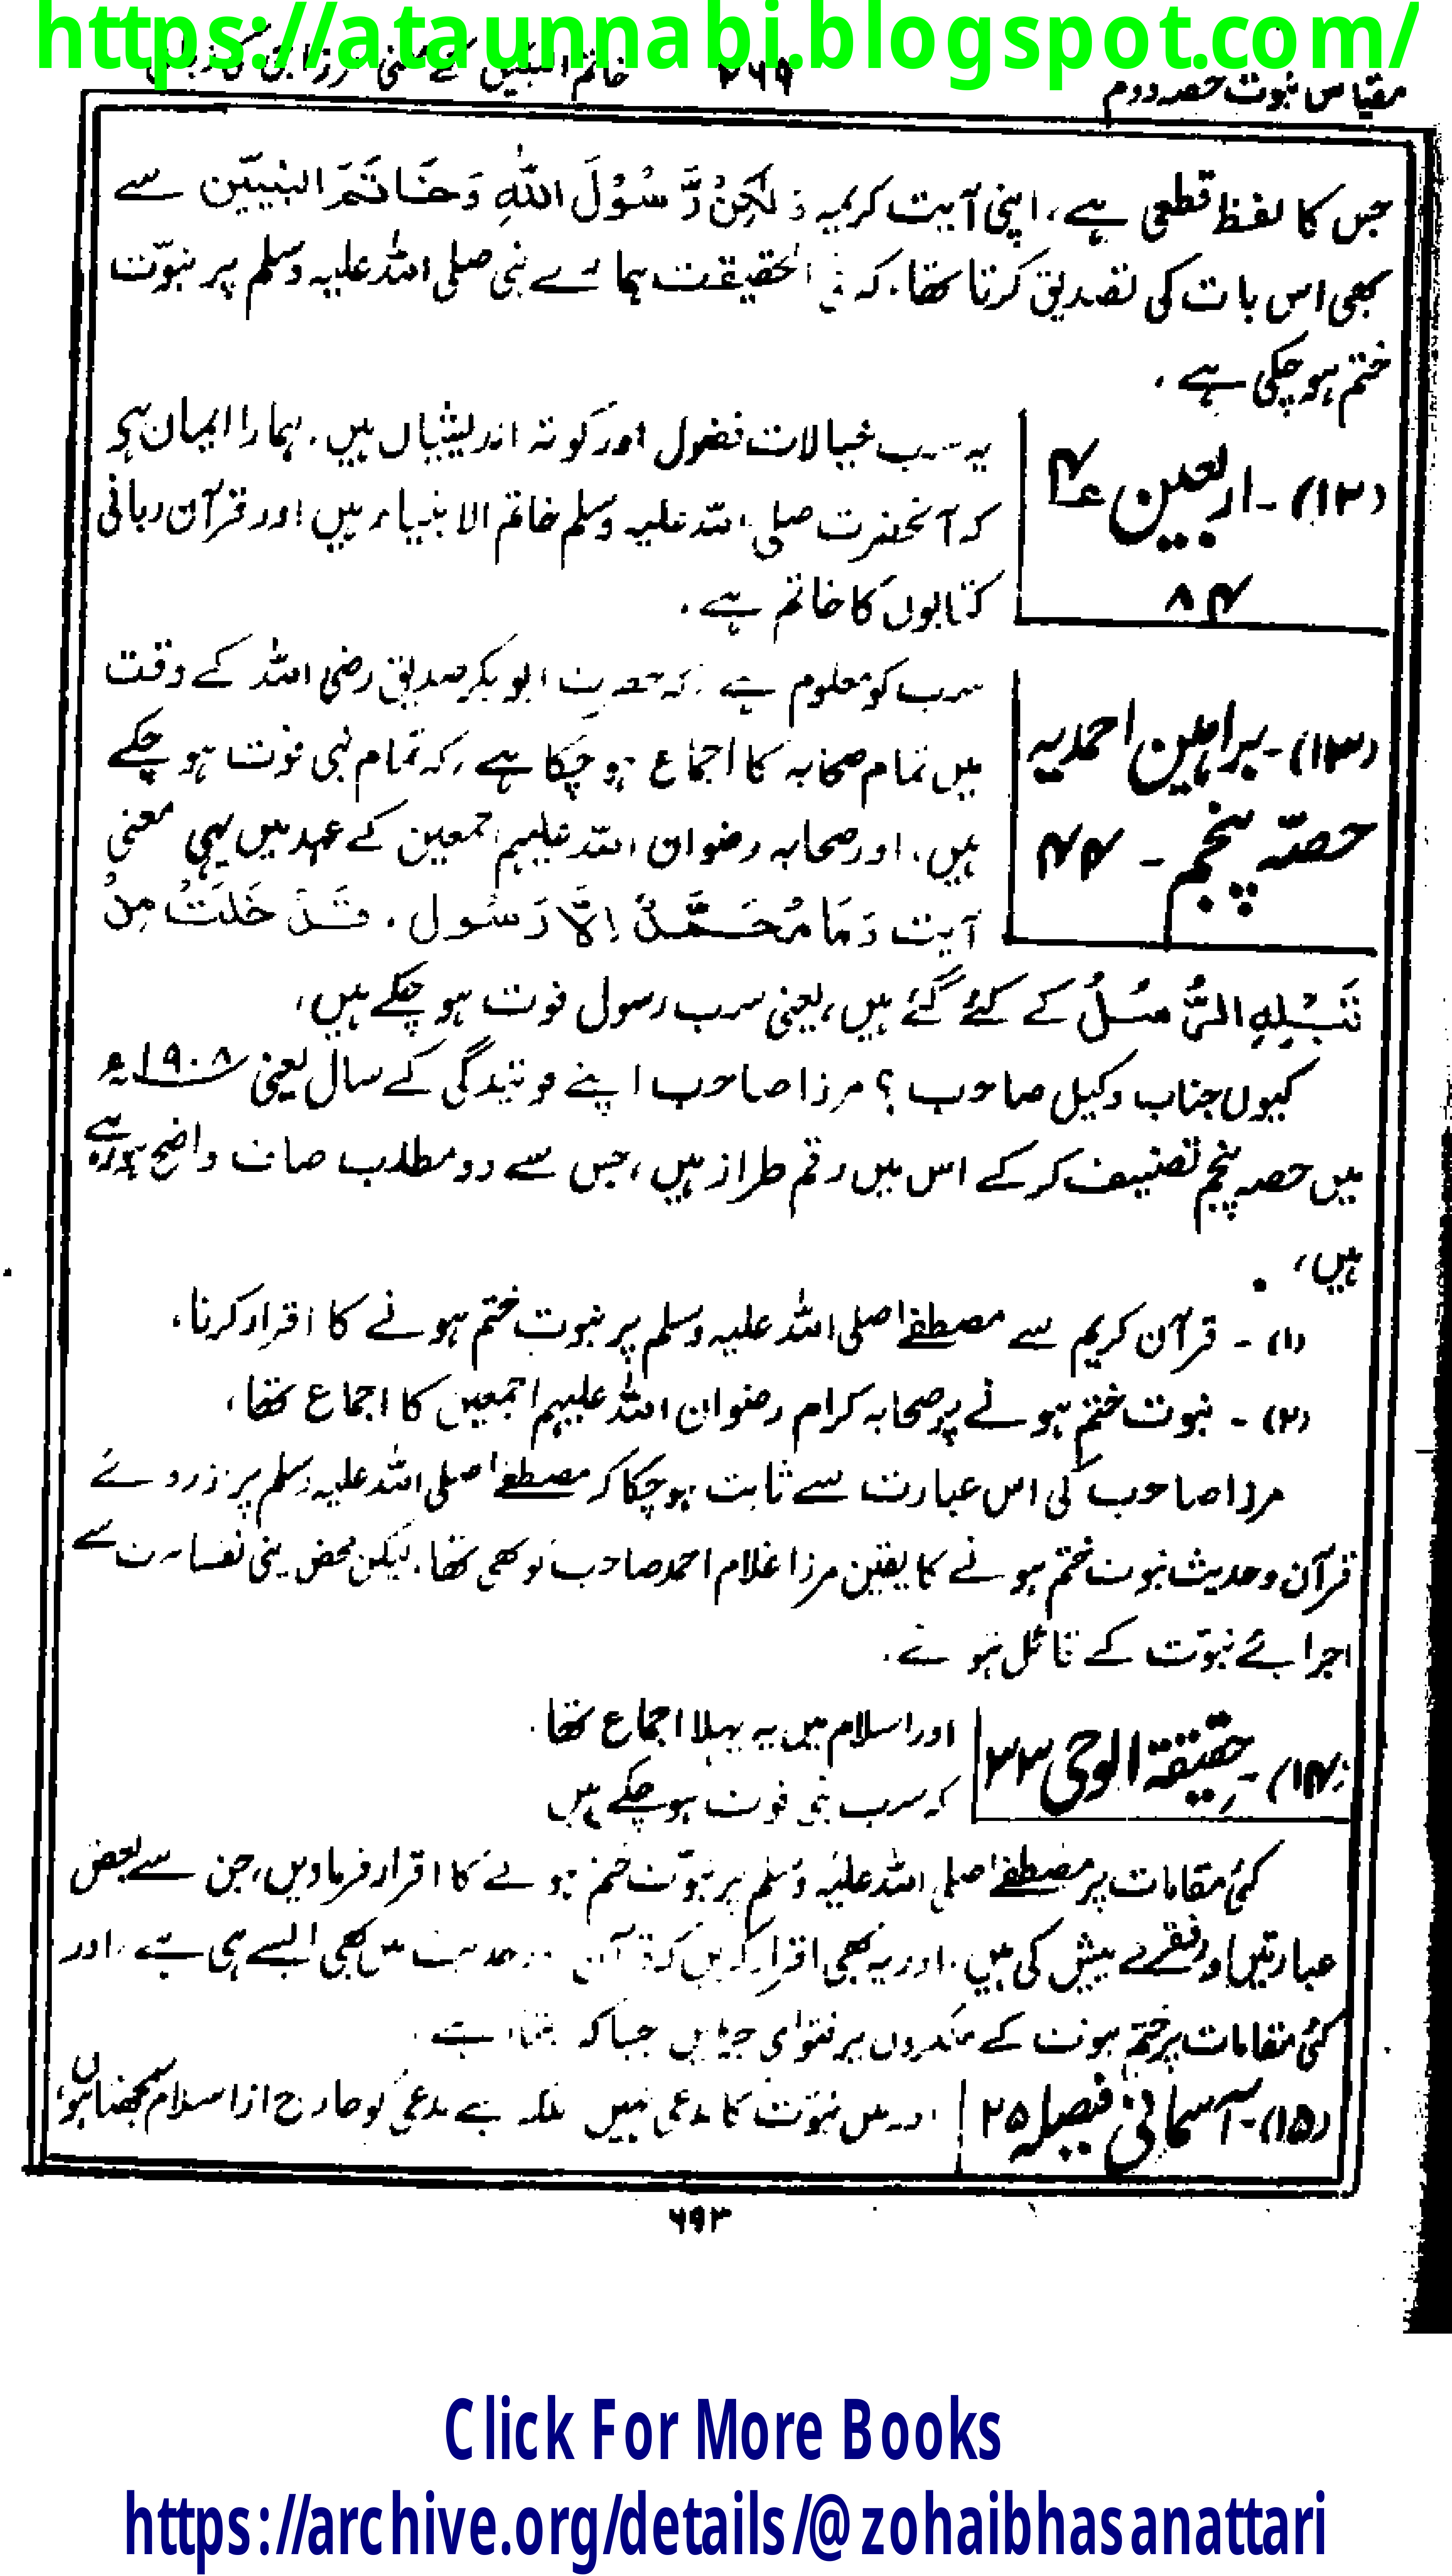 https://ataunnabi.blogspot.com/
مقیاس نبوت حصہ دوم ۲۶۹ خاتم النبیین کے معنی مرزا
جس کا لفظ قطعی ہے، اپنی آیت کریمہ وَلٰکِنْ رَّسُوْلَ اللّٰهِ وَخَاتَمَ النَّبِیّٖن سے
بھی اس بات کی تصدیق کرتا تھا، کہ فی الحقیقت ہمارے نبی صلی اللہ علیہ وسلم پر نبوّت
ختم ہو چکی ہے.
(۱۲)۔ اربعین ۴ ۸۴
یہ سب خیالات فضول اور کوتہ اندیشیاں ہیں، ہمارا ایمان ہے
کہ آنحضرت صلی اللہ علیہ وسلم خاتم الانبیاء ہیں اور قرآن ربانی
کتابوں کا خاتم ہے.
(۱۳)۔ براہین احمدیہ
حصّہ پنجم ۔ ۴۴
سب کو معلوم ہے کہ حضرت ابو بکر صدیق رضی اللہ کے وقت
میں تمام صحابہ کا اجماع ہو چکا ہے، کہ تمام نبی فوت ہو چکے
ہیں، اور صحابہ رضوان اللہ علیہم اجمعین کے عہد میں یہی معنی
آیت وَمَا مُحَمَّدٌ اِلَّا رَسُول، قَدْ خَلَتْ مِنْ
قَبْلِهِ الرُّسُلُ کے کئے گئے ہیں، یعنی سب رسول فوت ہو چکے ہیں،
کیوں جناب وکیل صاحب ؟ مرزا صاحب اپنے فوتیدگی کے سال یعنی ۱۹۰۸ء
میں حصہ پنجم تصنیف کر کے اس میں رقم طراز ہیں، جس سے دو مطلب صاف واضح ہو رہے
ہیں،
(۱) ۔ قرآن کریم سے مصطفےٰ صلی اللہ علیہ وسلم پر نبوت ختم ہونے کا اقرار کرنا،
(۲) ۔ نبوت ختم ہونے پر صحابہ کرام رضوان اللہ علیہم اجمعین کا اجماع تھا،
مرزا صاحب کی اس عبارت سے ثابت ہو چکا کہ مصطفےٰ صلی اللہ علیہ وسلم پر ازروئے
قرآن و حدیث نبوت ختم ہونے کا یقین مرزا غلام احمد صاحب کو بھی تھا، لیکن محض اپنی نفسانیت سے
اجرائے نبوّت کے قائل ہوئے.
(۱۴)۔ حقیقۃ الوحی ۳۳
اور اسلام میں یہ پہلا اجماع تھا.
کہ سب نبی فوت ہو چکے ہیں
کئی مقامات پر مصطفےٰ صلی اللہ علیہ وسلم پر نبوّت ختم ہونے کا اقرار فرما دیں، جن سے بعض
عبارتیں اور فقرے پیش کی ہیں، اور یہ بھی اقرار کریں کہ قرآن و حدیث میں بھی ایسے ہی ہے، اور
کئی مقامات پر ختم نبوت کے منکروں پر فتوٰی جڑیں جیسا کہ
(۱۵)۔ آسمانی فیصلہ ۲۵
اور میں نبوّت کا مدعی نہیں بلکہ ایسے مدعی کو خارج از اسلام سمجھتا ہوں،
۶۹۳
Click For More Books
https://archive.org/details/@zohaibhasanattari